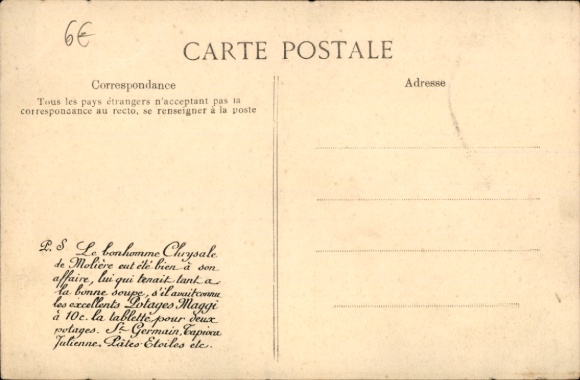 6€
CARTE POSTALE
Correspondance
Tous les pays étrangers n'acceptant pas la
correspondance au recto, se renseigner à la poste
Adresse
P. S Le bonhomme Chrysale
de Molière eut été bien à son
affaire, lui qui tenait tant a
la bonne soupe, s'il avait connu
les excellents Potages Maggi
à 10c. la tablette pour deux
potages. St Germain, Tapioca
Julienne. Pâtes Etoiles etc.